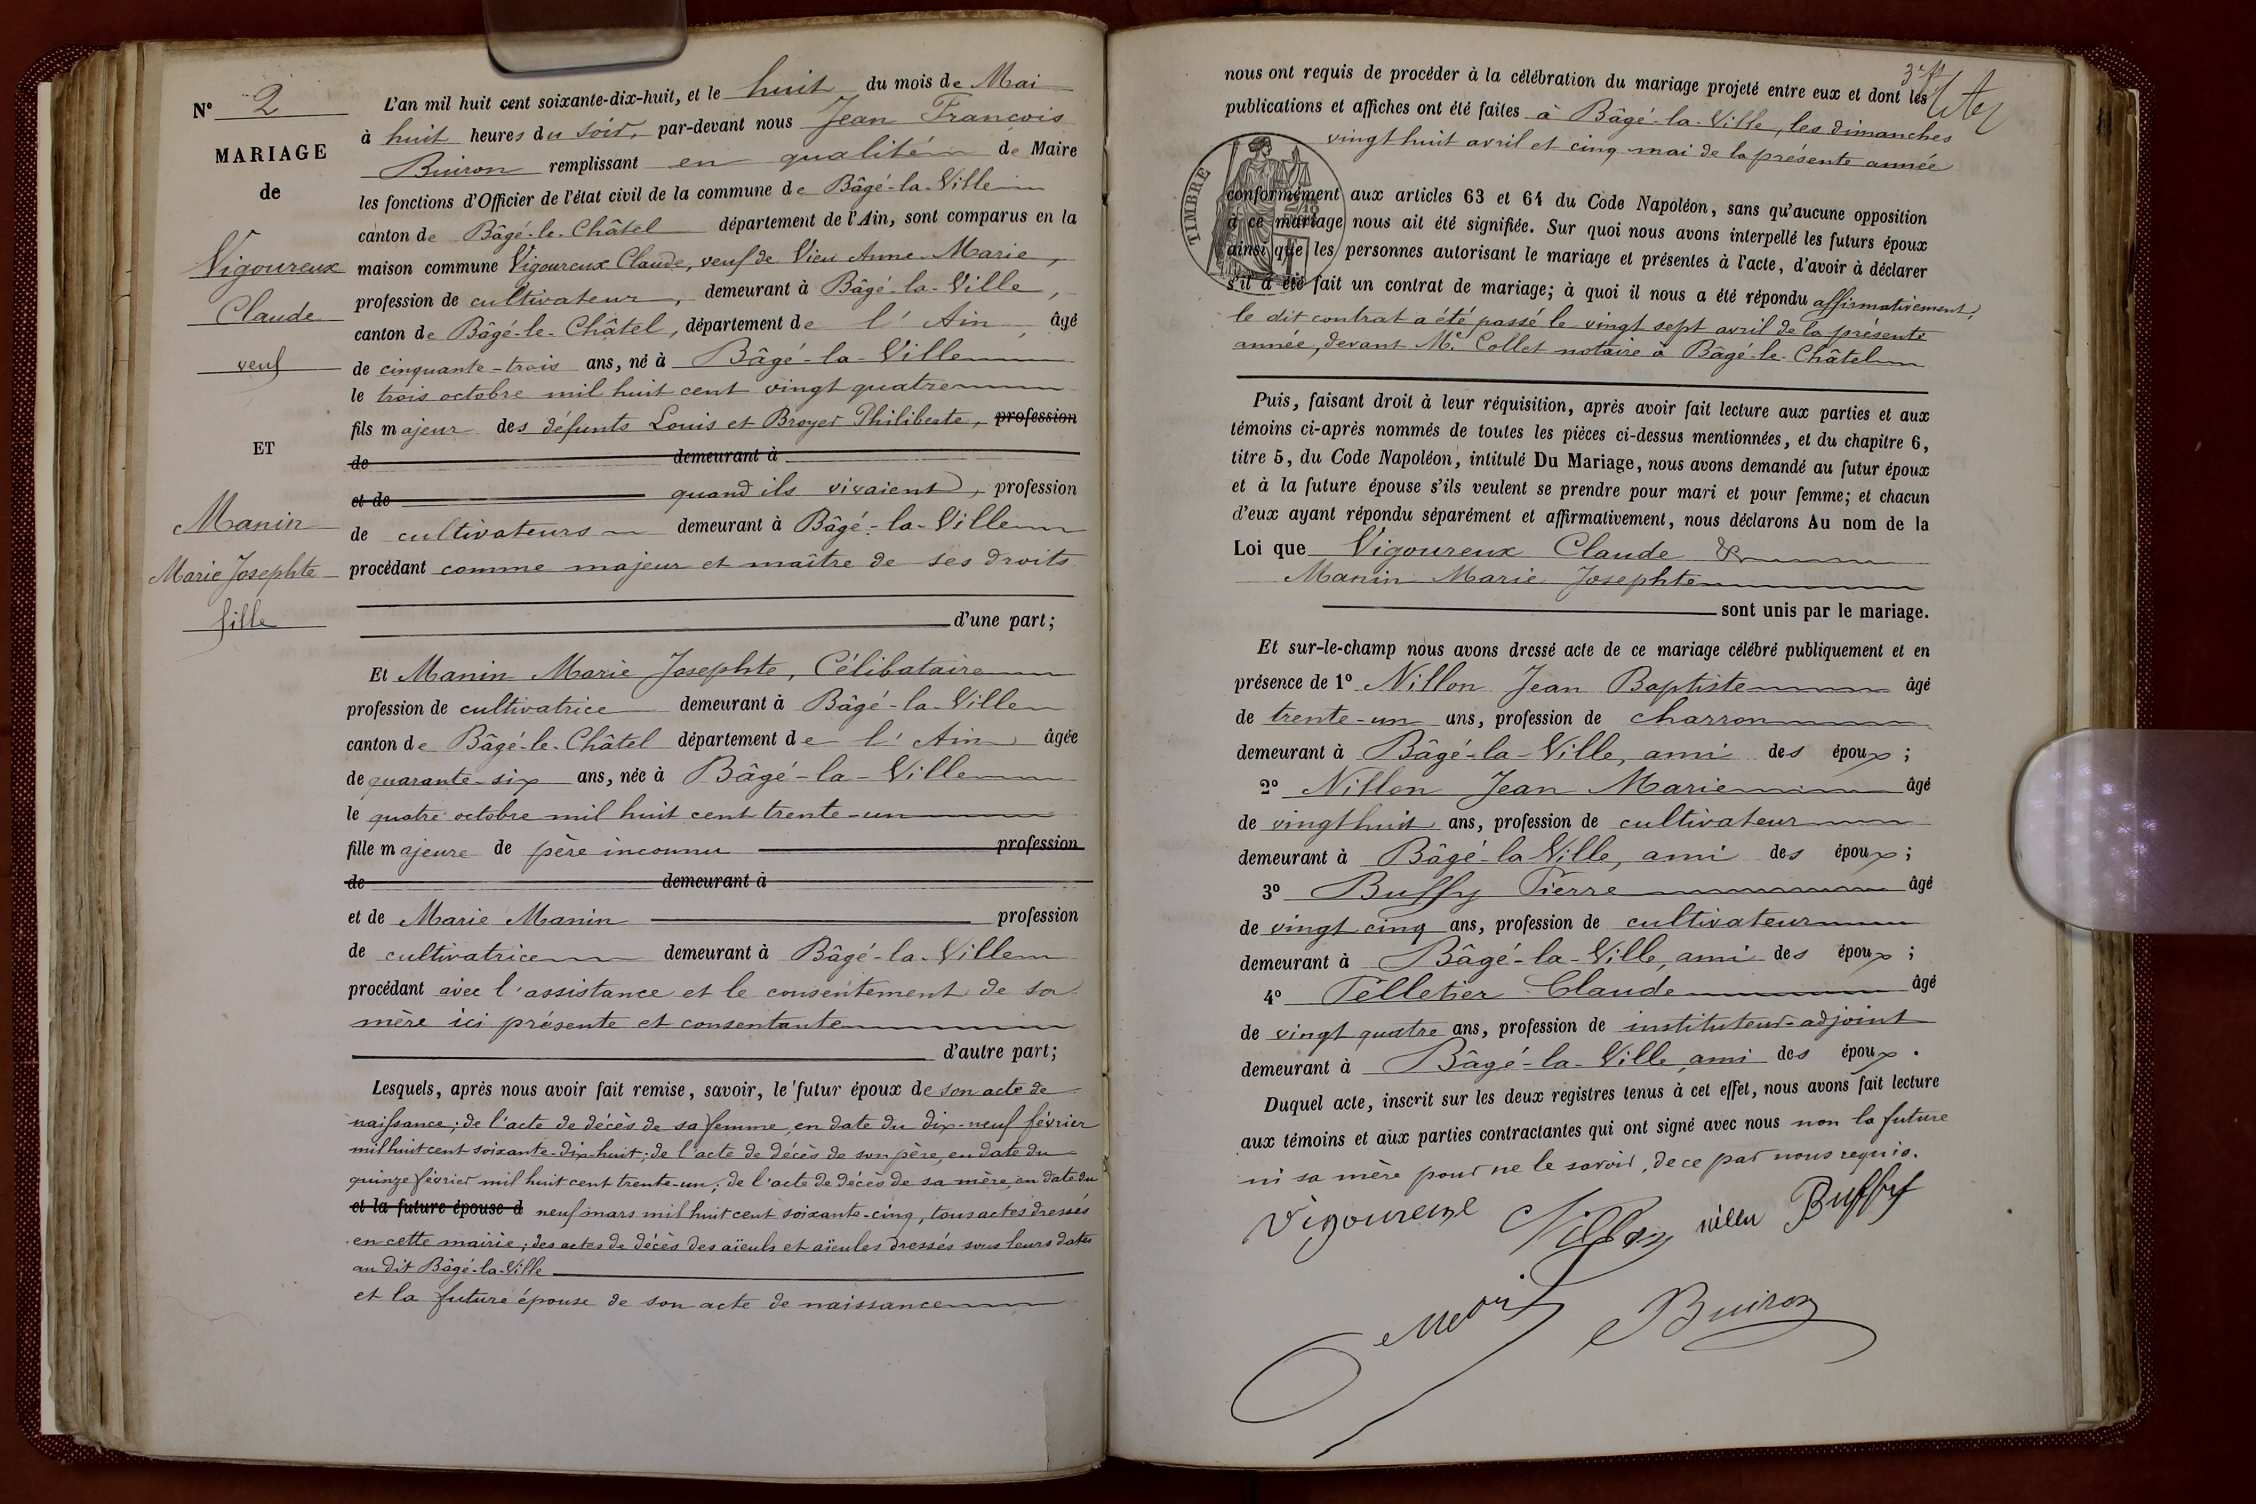 N° 2
MARIAGE
de
Vigoureux
Claude
veuf
ET
Manin
Marie Josephte
fille
L'an mil huit cent soixante-dix-huit, et le huit du mois de Mai
à huit heures du soir, par-devant nous Jean François
Buiron remplissant en qualité de Maire
les fonctions d'Officier de l'état civil de la commune de Bâgé-la-Ville
canton de Bâgé-le-Châtel département de l'Ain, sont comparus en la
maison commune Vigoureux Claude, veuf de Vieu Anne-Marie,
profession de cultivateur, demeurant à Bâgé-la-Ville,
canton de Bâgé-le-Châtel, département de l'Ain, âgé
de cinquante-trois ans, né à Bâgé-la-Ville
le trois octobre mil huit cent vingt quatre
fils majeur des défunts Louis et Broyer Philiberte, profession
de demeurant à
et de quand ils vivaient, profession
de cultivateurs demeurant à Bâgé-la-Ville
procédant comme majeur et maître de ses droits
d'une part;
Et Manin Marie Josephte, Célibataire
profession de cultivatrice demeurant à Bâgé-la-Ville
canton de Bâgé-le-Châtel département de l'Ain âgée
de quarante-six ans, née à Bâgé-la-Ville
le quatre octobre mil huit cent trente-un
fille majeure de père inconnu profession
de demeurant à
et de Marie Manin profession
de cultivatrice demeurant à Bâgé-la-Ville
procédant avec l'assistance et le consentement de sa
mère ici présente et consentante
d'autre part;
Lesquels, après nous avoir fait remise, savoir, le futur époux de son acte de
naissance; de l'acte de décès de sa femme en date du dix-neuf février
mil huit cent soixante-dix-huit; de l'acte de décès de son père, en date du
quinze février mil huit cent trente-un; de l'acte de décès de sa mère, en date du
et la future épouse d neuf mars mil huit cent soixante-cinq, tous actes dressés
en cette mairie; des actes de décès des aïeuls et aïeules dressés sous leurs dates
au dit Bâgé-la-Ville
et la future épouse de son acte de naissance
nous ont requis de procéder à la célébration du mariage projeté entre eux et dont les
publications et affiches ont été faites à Bâgé-la-Ville, les dimanches
vingt huit avril et cinq mai de la présente année
TIMBRE
conformément aux articles 63 et 64 du Code Napoléon, sans qu'aucune opposition
à ce mariage nous ait été signifiée. Sur quoi nous avons interpellé les futurs époux
ainsi que les personnes autorisant le mariage et présentes à l'acte, d'avoir à déclarer
s'il a été fait un contrat de mariage; à quoi il nous a été répondu affirmativement,
le dit contrat a été passé le vingt sept avril de la présente
année, devant Me Collet notaire à Bâgé-le-Châtel
Puis, faisant droit à leur réquisition, après avoir fait lecture aux parties et aux
témoins ci-après nommés de toutes les pièces ci-dessus mentionnées, et du chapitre 6,
titre 5, du Code Napoléon, intitulé Du Mariage, nous avons demandé au futur époux
et à la future épouse s'ils veulent se prendre pour mari et pour femme; et chacun
d'eux ayant répondu séparément et affirmativement, nous déclarons Au nom de la
Loi que Vigoureux Claude &
Manin Marie Josephte
sont unis par le mariage.
Et sur-le-champ nous avons dressé acte de ce mariage célébré publiquement et en
présence de 1° Nillon Jean Baptiste âgé
de trente-un ans, profession de charron
demeurant à Bâgé-la-Ville, ami des époux;
2° Nillon Jean Marie âgé
de vingt huit ans, profession de cultivateur
demeurant à Bâgé-la Ville, ami des époux;
3° Buffy Pierre âgé
de vingt cinq ans, profession de cultivateur
demeurant à Bâgé-la-Ville, ami des époux;
4° Pelletier Claude âgé
de vingt quatre ans, profession de instituteur-adjoint
demeurant à Bâgé-la-Ville, ami des époux.
Duquel acte, inscrit sur les deux registres tenus à cet effet, nous avons fait lecture
aux témoins et aux parties contractantes qui ont signé avec nous non la future
ni sa mère pour ne le savoir, de ce par nous requis.
Vigoureux Nillon nillon Buffy
Buiron